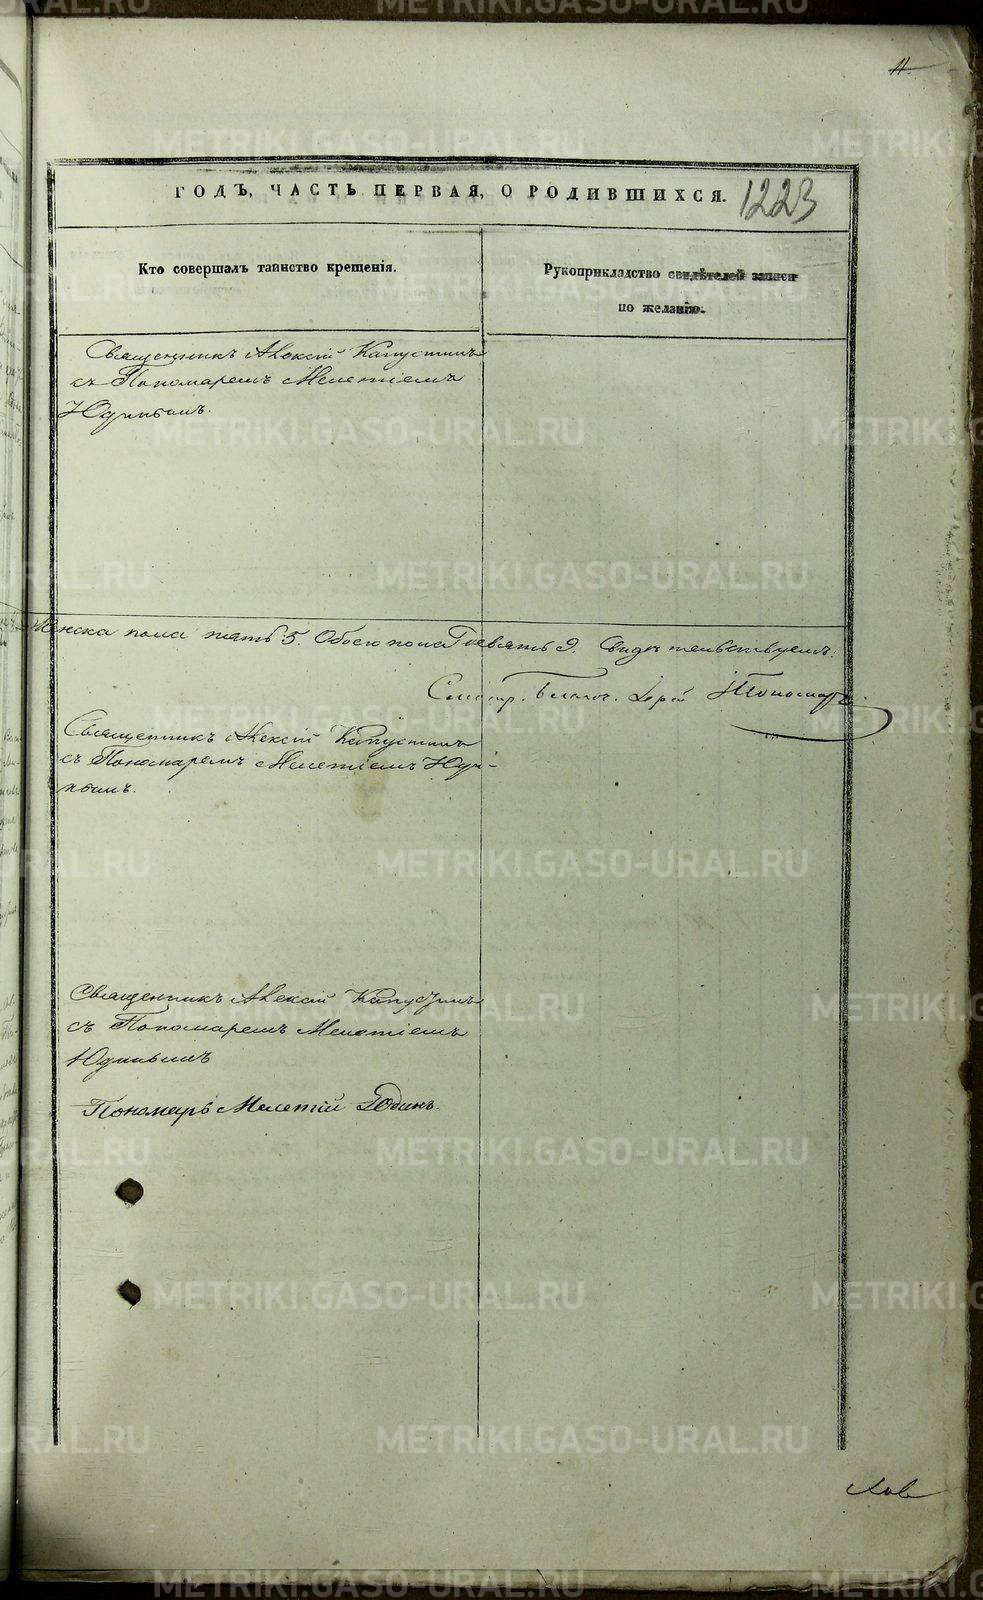 11
ГОДЪ, ЧАСТЬ ПЕРВАЯ, О РОДИВШИХСЯ.
1223
Кто совершалъ таинство крещенія.
Рукоприкладство свидѣтелей записи
по желанію.
Священникъ Алексій Капустинъ
съ Пономаремъ Мелетіемъ
Юдинымъ.
Женска пола пять 5. Обоего пола девять 9. Свидѣтельствуемъ:
Священникъ Алексій Капустинъ
съ Пономаремъ Мелетіемъ Юди-
нымъ.
Священникъ Алексій Капустинъ
съ Пономаремъ Мелетіемъ
Юдинымъ
Пономарь Мелетій Юдинъ.
METRIKI.GASO-URAL.RU